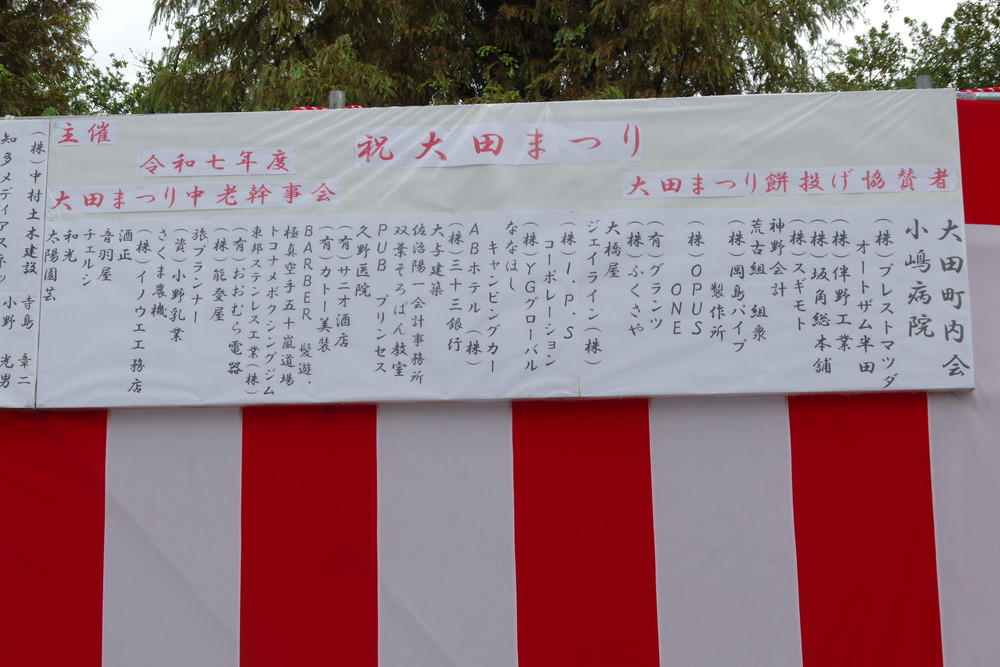 祝大田まつり
主催
令和七年度
大田まつり中老幹事会
大田まつり餅投げ協賛者
大田町内会
小嶋病院
(株)ブレストマツダ
オートザム半田
(株)伴野工業
(株)坂角総本舗
(株)スギモト
神野会計
荒古組 組衆
(株)岡島パイプ
製作所
(株)OPUS
ONE
(有)グランツ
(株)ふくさや
大橋屋
ジェイライン(株)
(株)I.P.S
コーポレーション
(株)YGグローバル
ななほし
キャンピングカー
ABホテル(株)
(株)三十三銀行
大与建築
佐治陽一会計事務所
双葉そろばん教室
PUB プリンセス
久野医院
(有)サニオ酒店
(有)カトー美装
BARBER 髪遊.
極真空手五十嵐道場
トコナメボクシングジム
東邦ステンレス工業(株)
(有)おおむら電器
(株)能登屋
旅プランナー
(資)小野乳業
さくま農機
(株)イノウエ工務店
酒正
音羽屋
チェルシン
和光
太陽園芸
(株)中村土木建設 寺島 章二
知多メディアスネッ 小野 光男